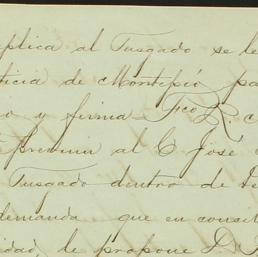 plica al Jusgado se le
ticia de Montepío pa
o y firma Fco R. c
premia al C José
Jusgado dentro de te
demanda que en consil
idad, le propone D.